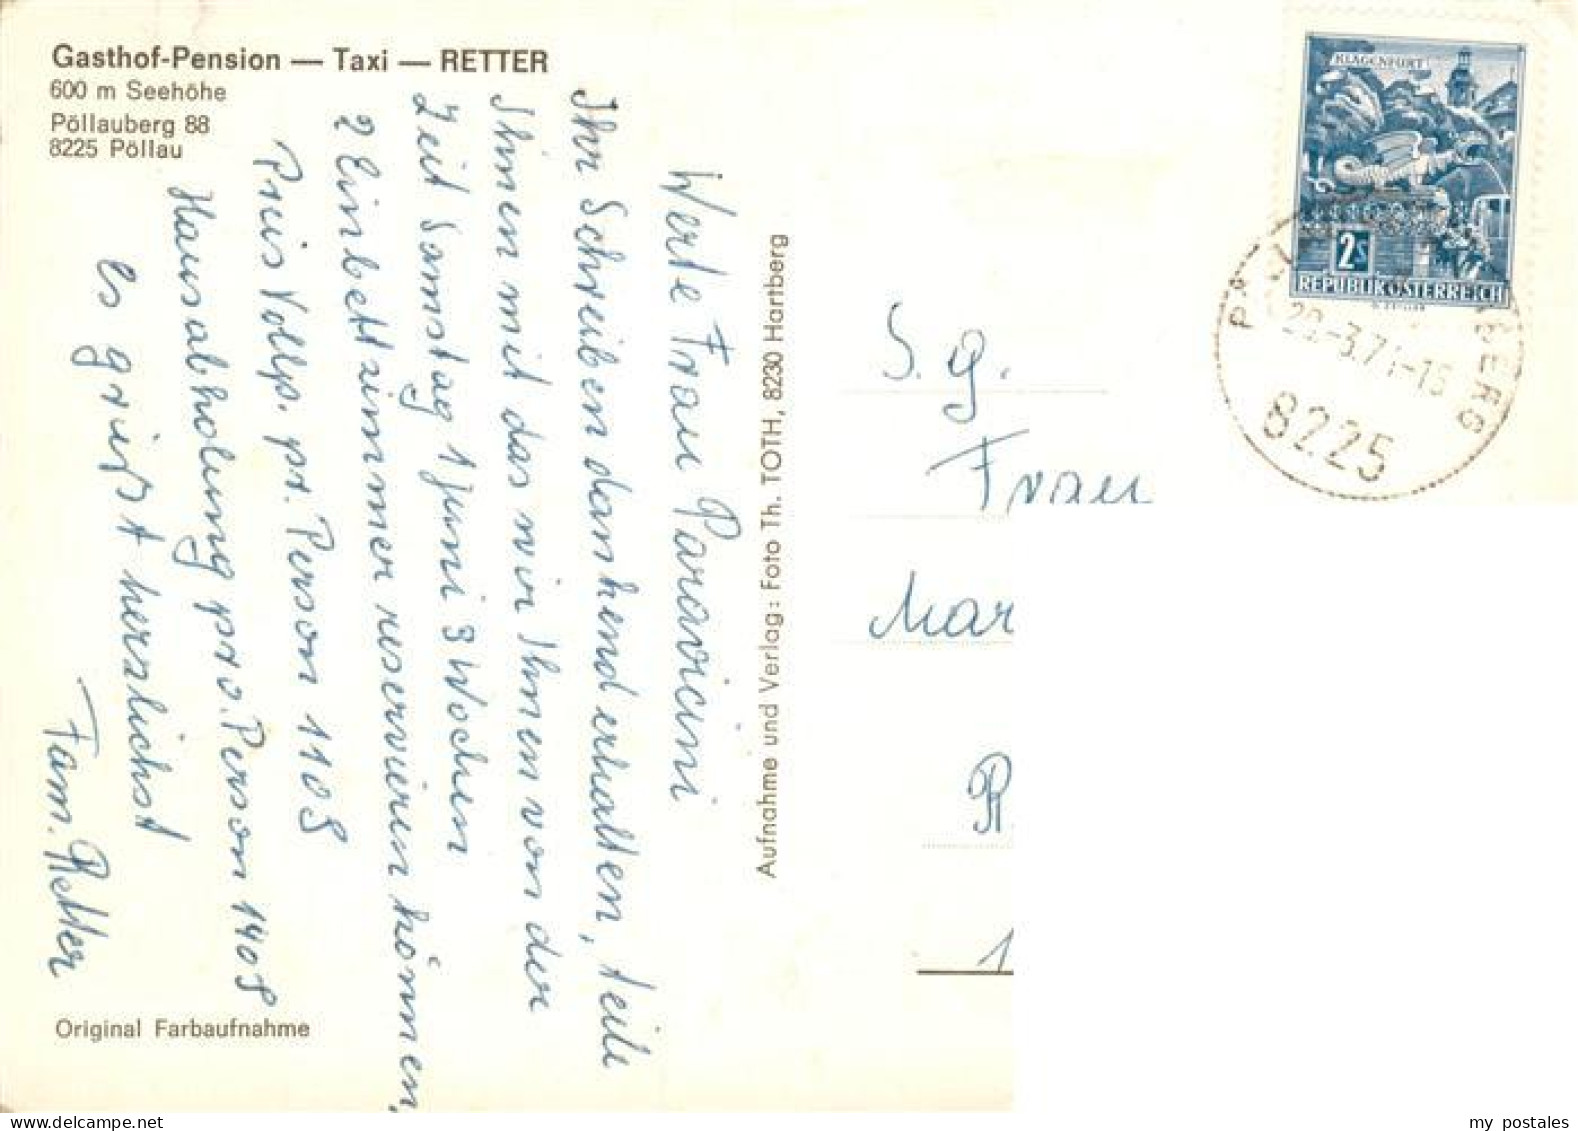 Gasthof-Pension — Taxi — RETTER
600 m Seehöhe
Pöllauberg 88
8225 Pöllau
Werte Frau Paravicini
Ihr Schreiben dankend erhalten, teile
Ihnen mit das wir Ihnen von der
Zeit Samstag 1 Juni 3 Wochen
2 Einbettzimmer reservieren können,
Preis Vollp. pr. Person 110 S
Hausabholung pro. Person 140 S
es grüßt herzlichst
Fam. Retter
Original Farbaufnahme
Aufnahme und Verlag: Foto Th. TOTH, 8230 Hartberg
S. g.
Frau
Mar
R
1
KLAGENFURT
2 S
REPUBLIK ÖSTERREICH
8225
my postales